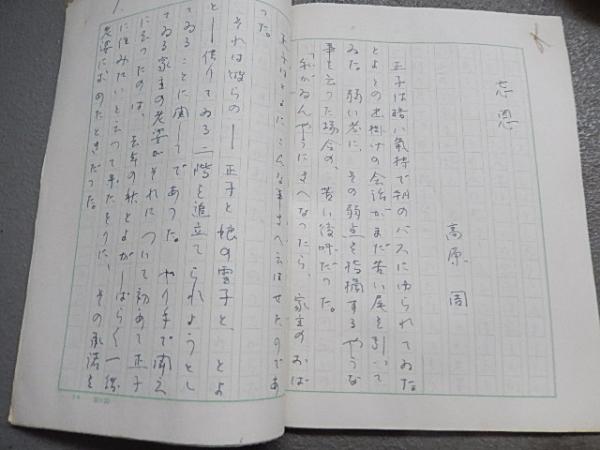 忘恩
高原
正子は暗い氣持で朝のバスにゆられてゐた。
とよとの出掛けの会話がまだ苦い尾を引いて
ゐた。弱い者に、その弱点を指摘するやうな
事を云った場合の、苦い後味だった。
「私がゐんやうにさへなったら、家主のおば
った。
それは彼らの――正子と娘の雪子と、とよ
と――借りてゐる二階を追立てられようとし
てゐることに関してであった。やり手で聞え
てゐる家主の老婆がそれについて初めて正子
に云ったのは、去年の秋とよがしばらく一緒
に住みたいと云って来たをりに、その承諾を
老婆に求めたときだった。